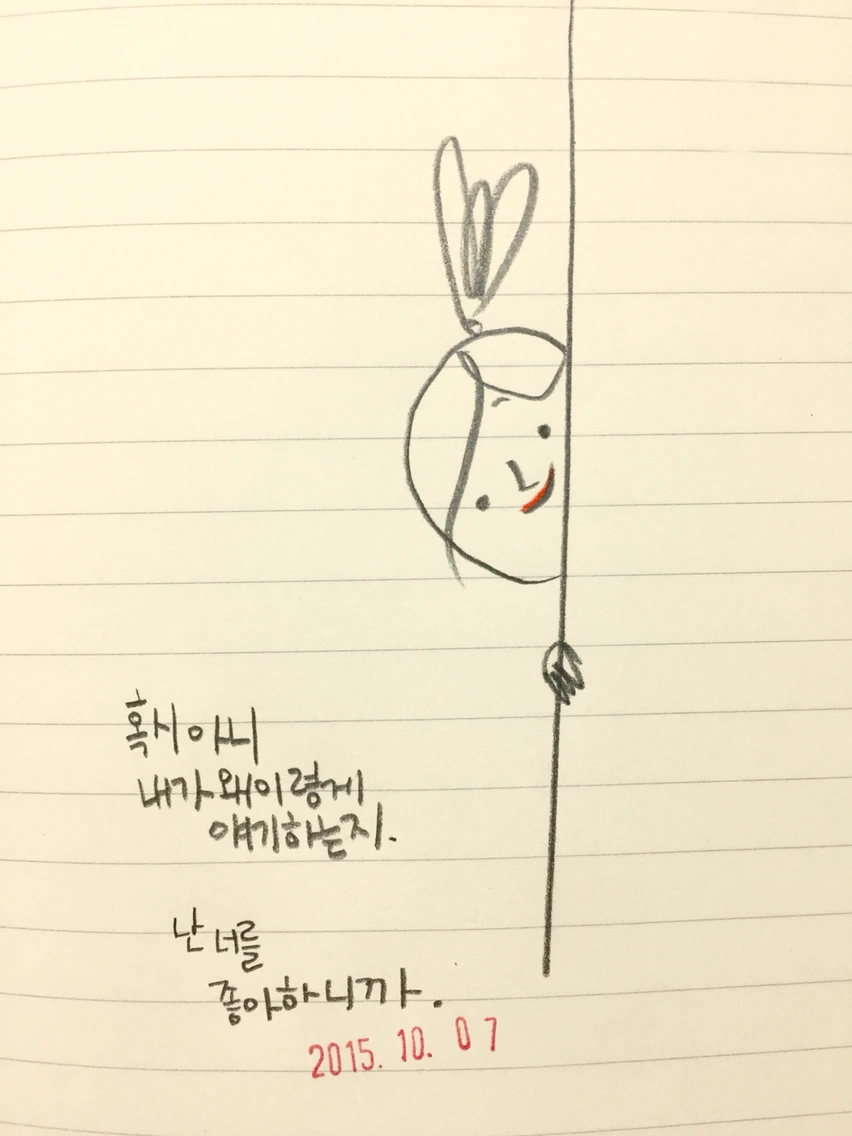 혹시 아니
내가 왜 이렇게
얘기하는지.
난 너를
좋아하니까.
2015. 10. 07